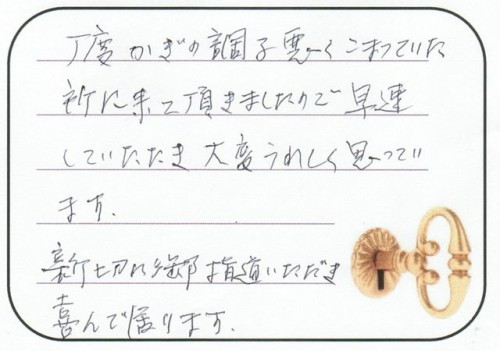 丁度かぎの調子悪くこまっていた
所に来て頂きましたので早速
していただき大変うれしく思ってい
ます.
親切に御指導いただき
喜んで居ります.